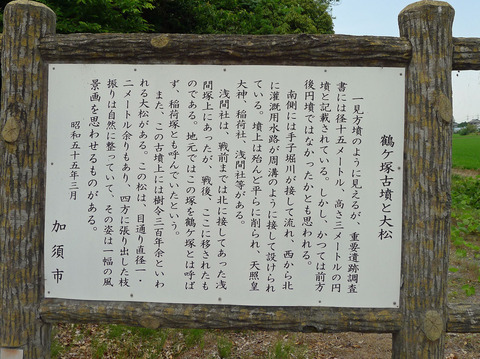 鶴ヶ塚古墳と大松
一見方墳のように見えるが、重要遺跡調査
書には径十五メートル、高さ三メートルの円
墳と記載されている。しかし、かつては前方
後円墳ではなかったかとも思われる。
南側には手子堀川が接して流れ、西から北
に灌漑用水路が周溝のように接して設けられ
ている。墳上は殆んど平らに削られ、天照皇
大神、稲荷社、浅間社等がある。
浅間社は、戦前までは北に接してあった浅
間塚上にあったが、戦後、ここに移されたも
のである。地元ではこの塚を鶴ヶ塚とは呼ば
ず、稲荷塚とも呼んでいたという。
また、この古墳上には樹令三百年余といわ
れる大松がある。この松は、目通り直径一・
二メートル余りもあり、四方に張り出した枝
振りは自然に整っていて、その姿は一幅の風
景画を思わせるものがある。
昭和五十五年三月
加須市